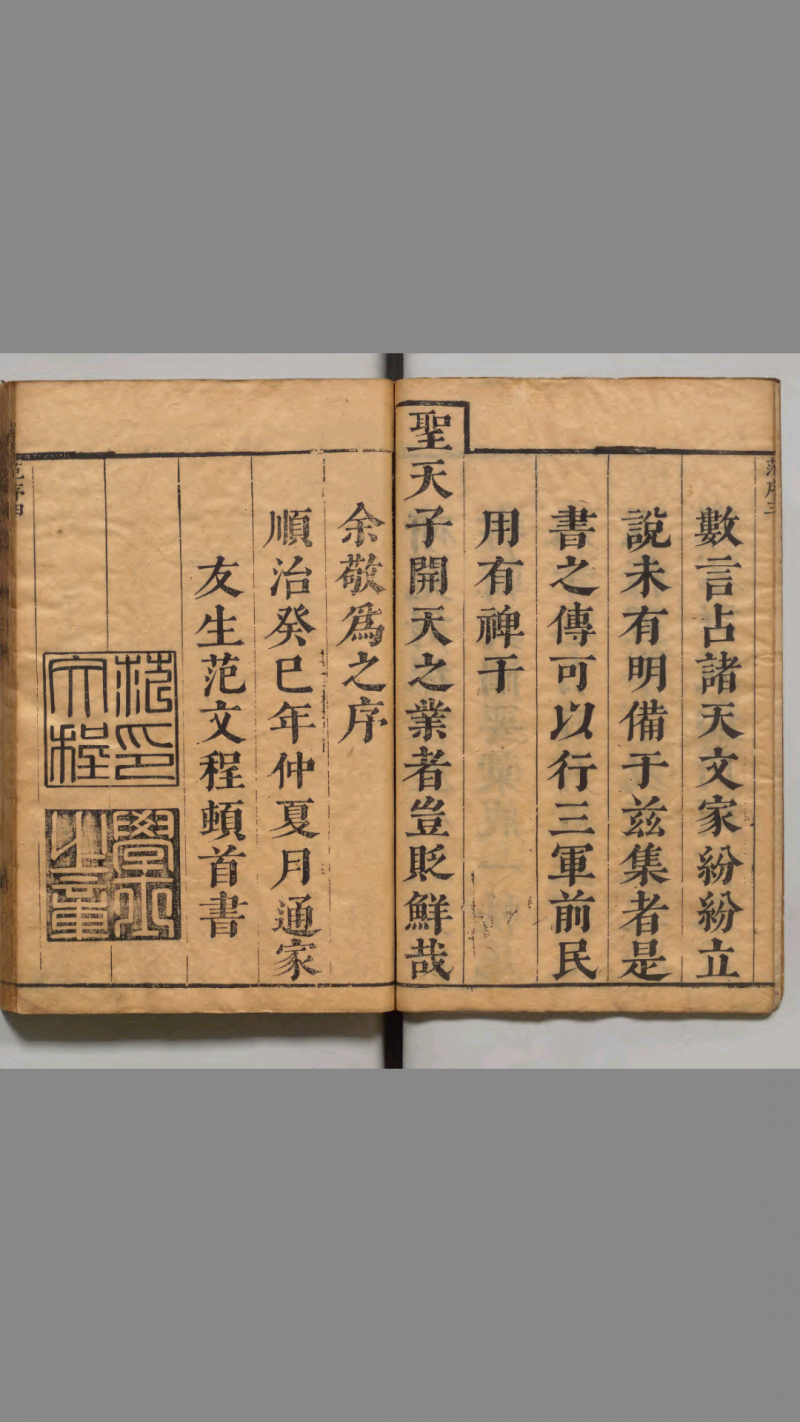 范序三
數言占諸天文家紛紛立
說未有明備于茲集者是
書之傳可以行三軍前民
用有裨于
聖天子開天之業者豈貶鮮哉
余敬爲之序
順治癸巳年仲夏月通家
友生范文程頓首書
范印
文程
憲斗
之章
范序四